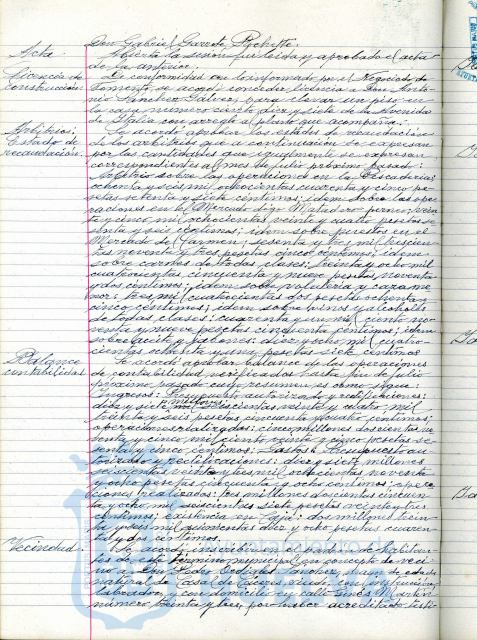 Don Gabriel Garrote
Acta. Abierta la sesión fue leida y aprobada el acta
de la anterior.
Licencia de De conformidad con lo informado por el Negociado de
construcción. Fomento, se acordó conceder licencia a Don Anto-
nio Sanchez Galvez, para elevar un piso en
la casa número ciento diez y siete de la Avenida
de Italia con arreglo al que acompaña.
Arbitrios: Se acordó aprobar los estados de recaudación
Estado de de los arbitrios que a continuación se expresan
recaudación. por las cantidades que igualmente se expresan
correspondientes al mes de Julio próximo pasado:
Arbitrio sobre las operaciones en la Pescaderia:
ochenta y seis mil ochocientas cuarenta y cinco pe-
setas setenta y siete centimos; idem sobre las ope-
raciones en el Mercado
y cinco mil ochocientas veinte y cuatro pesetas
y seis centimos; idem sobre puestos en el
Mercado del Carmen: sesenta y tres mil trescien-
tas noventa y tres pesetas cinco centimos; idem
sobre carnes de todas clases: treinta y ocho mil
cuatrocientas cincuenta y nueve pesetas noventa
y dos centimos; idem sobre volateria y caza me-
nor: tres mil cuatrocientas dos pesetas ochenta y
cinco centimos; idem sobre vinos y alcoholes
de todas clases: cuarenta y un mil ciento no-
venta y nueve pesetas cincuenta centimos; idem
sobre aceite y jabones: diez y ocho mil cuatro-
cientas ochenta y una pesetas siete centimos
Balance Se acordó aprobar balance de las operaciones
contabilidad. de contabilidad verificadas hasta fin de Julio
próximo pasado cuyo resumen es como sigue:
Ingresos: Presupuesto autorizado y rectificaciones:
millones
diez y siete doscientas veinte y cuatro mil
treinta y seis pesetas cincuenta y cuatro centimos;
operaciones realizadas: cinco millones doscientas no-
venta y cinco mil ciento veinte y cinco pesetas se-
senta y cinco centimos; Gastos: Presupuesto au-
torizado y rectificaciones: diez y siete millones
seiscientas mil ochocientas noventa
y ocho pesetas cincuenta y ocho centimos; opera-
ciones realizadas: tres millones doscientas cincuen-
ta y ocho mil seiscientas siete pesetas veinte y tres
centimos; existencia en Caja: dos millones trein-
ta y seis mil quinientas diez y ocho pesetas cuaren-
ta y dos centimos.
Vecindad. Se acordó inscribir en el padrón de habitan-
tes de este término municipal en concepto de veci-
no a Don Pedro Sanchez, mayor de edad,
natural de Casar de Cáceres, viudo, con instrucción,
labrador, y con domicilio en calle Martin
número treinta y tres, por haber acreditado